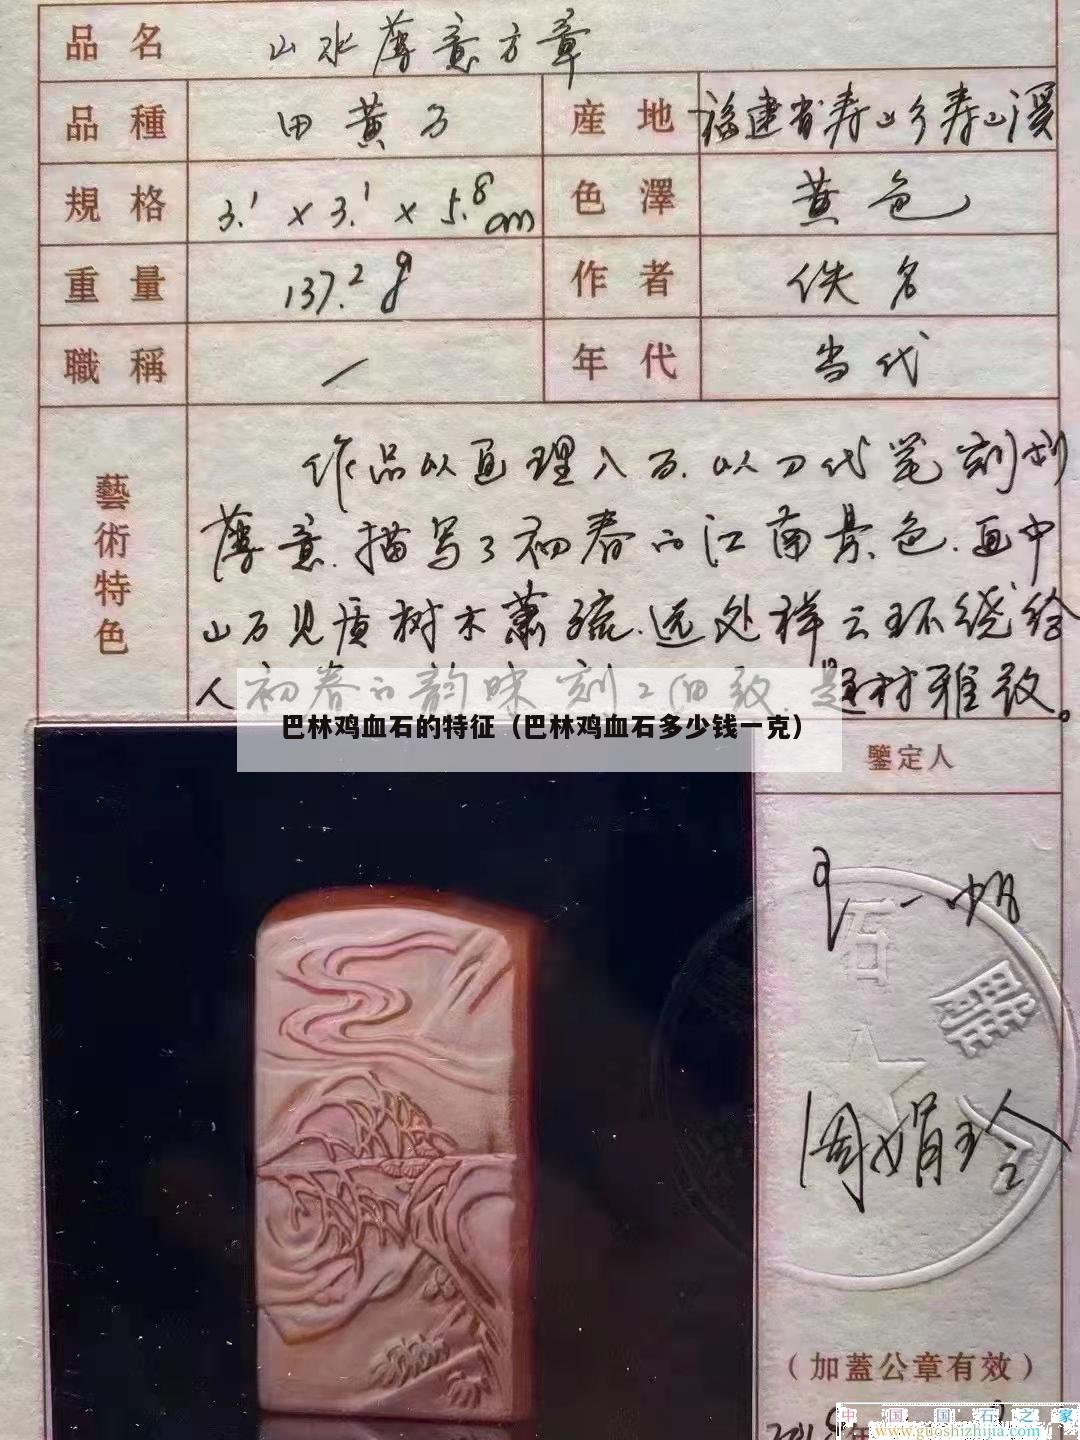 品名 山水薄意方章
品種 田黄石 産地 福建省寿山乡寿山溪
規格 3.1 x 3.1 x 5.8cm 色澤 黄色
重量 137.2g 作者 佚名
職稱 — 年代 当代
藝術特色
作品以画理入石.以刀代笔刻划
薄意.描写了初春的江南景色.画中
山石见质树木萧疏.远处祥云环绕给
人初春的韵味.刻工细致.题材雅致。
巴林鸡血石的特征（巴林鸡血石多少钱一克）
鑒定人
王一帆
石雕
周娟玲
（加蓋公章有效）
中国国石之家
www.guoshizhijia.com